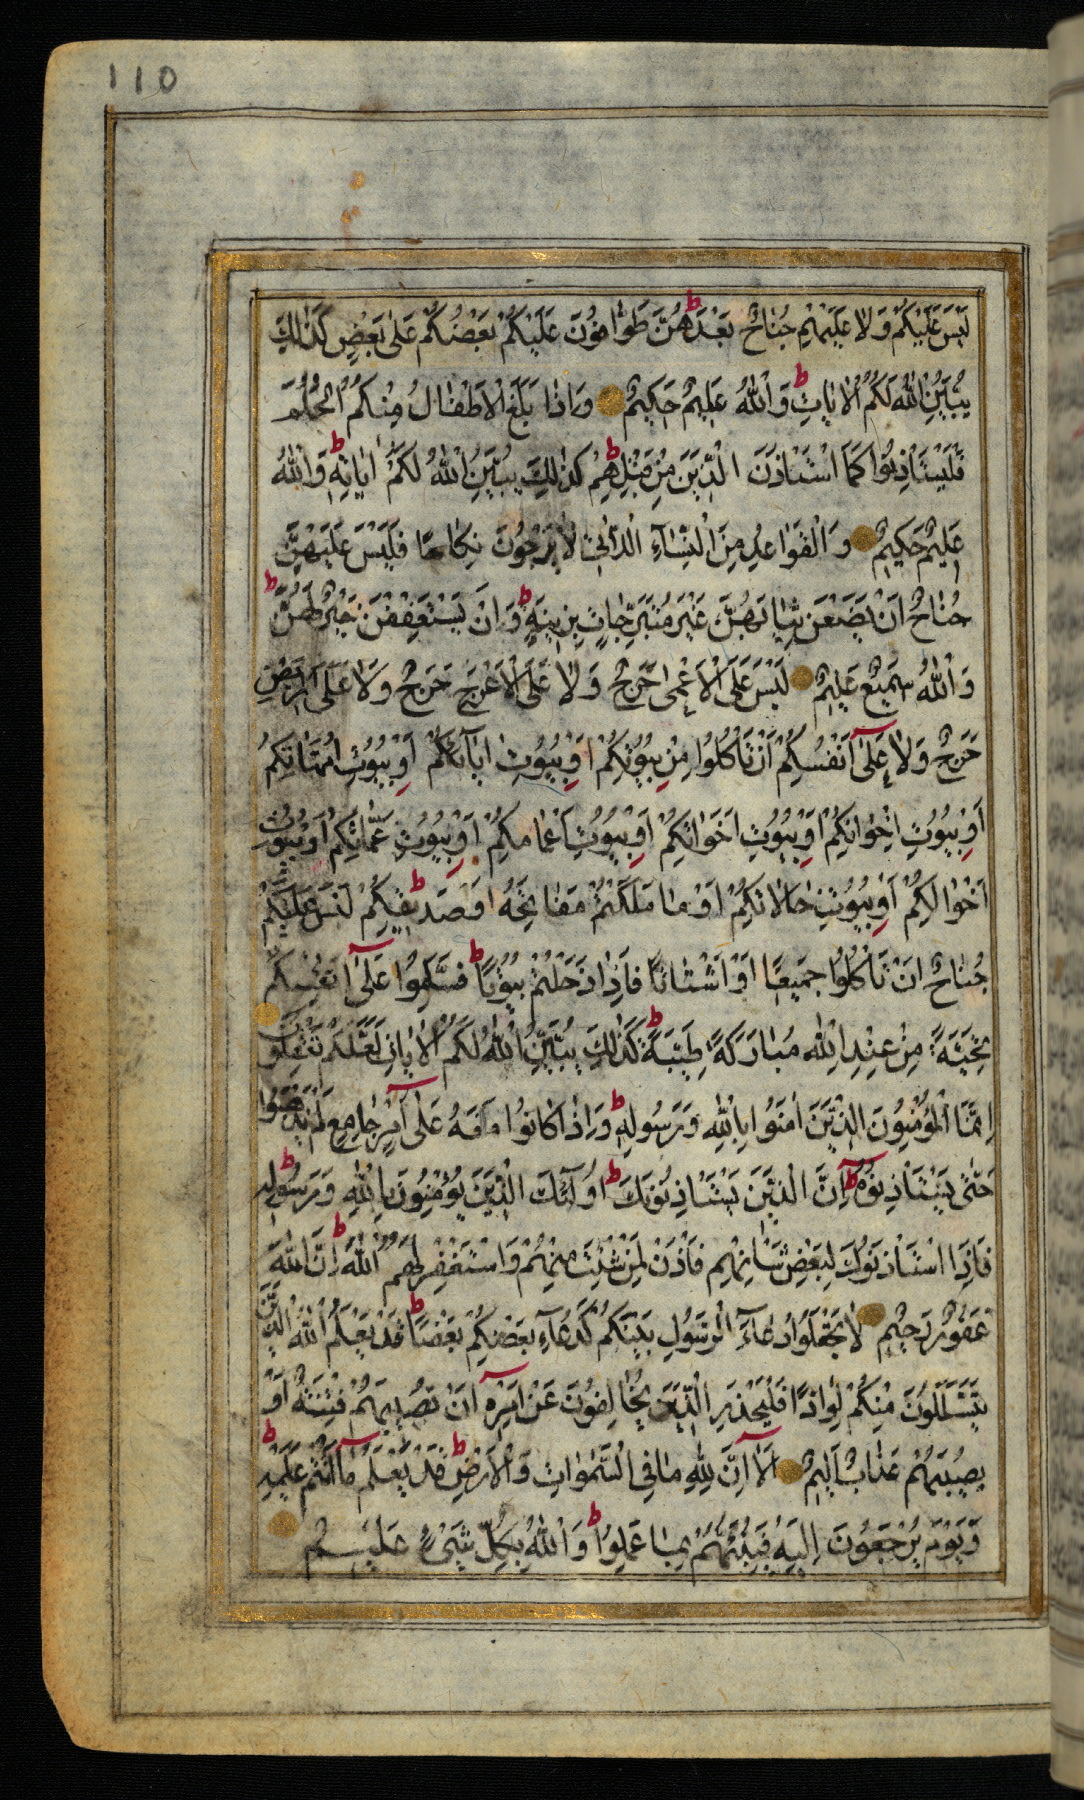 110
لَيْسَ عَلَيْكُمْ وَلَا عَلَيْهِمْ جُنَاحٌ بَعْدَهُنَّ ط طَوَّافُونَ عَلَيْكُمْ بَعْضُكُمْ عَلَىٰ بَعْضٍ كَذَٰلِكَ
يُبَيِّنُ اللهُ لَكُمُ الْاٰيَاتِ ط وَاللهُ عَلِيمٌ حَكِيمٌ وَاِذَا بَلَغَ الْاَطْفَالُ مِنْكُمُ الْحُلُمَ
فَلْيَسْتَاْذِنُوا كَمَا اسْتَاْذَنَ الَّذِينَ مِنْ قَبْلِهِمْ ط كَذٰلِكَ يُبَيِّنُ اللهُ لَكُمْ اٰيَاتِهِ ط وَاللهُ
عَلِيمٌ حَكِيمٌ وَالْقَوَاعِدُ مِنَ النِّسَاءِ الّٰتِي لَا يَرْجُونَ نِكَاحًا فَلَيْسَ عَلَيْهِنَّ
جُنَاحٌ اَنْ يَضَعْنَ ثِيَابَهُنَّ غَيْرَ مُتَبَرِّجَاتٍ بِزِينَةٍ ط وَاَنْ يَسْتَعْفِفْنَ خَيْرٌ لَهُنَّ ط
وَاللهُ سَمِيعٌ عَلِيمٌ لَيْسَ عَلَى الْاَعْمٰى حَرَجٌ وَلَا عَلَى الْاَعْرَجِ حَرَجٌ وَلَا عَلَى الْمَرِيضِ
حَرَجٌ وَلَا عَلٰٓى اَنْفُسِكُمْ اَنْ تَاْكُلُوا مِنْ بُيُوتِكُمْ اَوْ بُيُوتِ اٰبَآئِكُمْ اَوْ بُيُوتِ اُمَّهَاتِكُمْ
اَوْ بُيُوتِ اِخْوَانِكُمْ اَوْ بُيُوتِ اَخَوَاتِكُمْ اَوْ بُيُوتِ اَعْمَامِكُمْ اَوْ بُيُوتِ عَمَّاتِكُمْ اَوْ بُيُوتِ
اَخْوَالِكُمْ اَوْ بُيُوتِ خَالَاتِكُمْ اَوْ مَا مَلَكْتُمْ مَفَاتِحَهُ اَوْ صَدِيقِكُمْ ط لَيْسَ عَلَيْكُمْ
جُنَاحٌ اَنْ تَاْكُلُوا جَمِيعًا اَوْ اَشْتَاتًا ط فَاِذَا دَخَلْتُمْ بُيُوتًا فَسَلِّمُوا عَلٰٓى اَنْفُسِكُمْ
تَحِيَّةً مِنْ عِنْدِ اللهِ مُبَارَكَةً طَيِّبَةً ط كَذٰلِكَ يُبَيِّنُ اللهُ لَكُمُ الْاٰيَاتِ لَعَلَّكُمْ تَعْقِلُونَ
اِنَّمَا الْمُؤْمِنُونَ الَّذِينَ اٰمَنُوا بِاللهِ وَرَسُولِهِ ط وَاِذَا كَانُوا مَعَهُ عَلٰٓى اَمْرٍ جَامِعٍ لَمْ يَذْهَبُوا
حَتّٰى يَسْتَاْذِنُوهُ ط اِنَّ الَّذِينَ يَسْتَاْذِنُونَكَ ط اُولٰٓئِكَ الَّذِينَ يُؤْمِنُونَ بِاللهِ وَرَسُولِهِ ط
فَاِذَا اسْتَاْذَنُوكَ لِبَعْضِ شَاْنِهِمْ فَاْذَنْ لِمَنْ شِئْتَ مِنْهُمْ وَاسْتَغْفِرْ لَهُمُ اللهَ ط اِنَّ اللهَ
غَفُورٌ رَحِيمٌ لَا تَجْعَلُوا دُعَآءَ الرَّسُولِ بَيْنَكُمْ كَدُعَآءِ بَعْضِكُمْ بَعْضًا ط قَدْ يَعْلَمُ اللهُ الَّذِينَ
يَتَسَلَّلُونَ مِنْكُمْ لِوَاذًا فَلْيَحْذَرِ الَّذِينَ يُخَالِفُونَ عَنْ اَمْرِهِ اَنْ تُصِيبَهُمْ فِتْنَةٌ اَوْ
يُصِيبَهُمْ عَذَابٌ اَلِيمٌ اَلَآ اِنَّ لِلّٰهِ مَا فِي السَّمٰوَاتِ وَالْاَرْضِ ط قَدْ يَعْلَمُ مَآ اَنْتُمْ عَلَيْهِ ط
وَيَوْمَ يُرْجَعُونَ اِلَيْهِ فَيُنَبِّئُهُمْ بِمَا عَمِلُوا ط وَاللهُ بِكُلِّ شَيْءٍ عَلِيمٌ